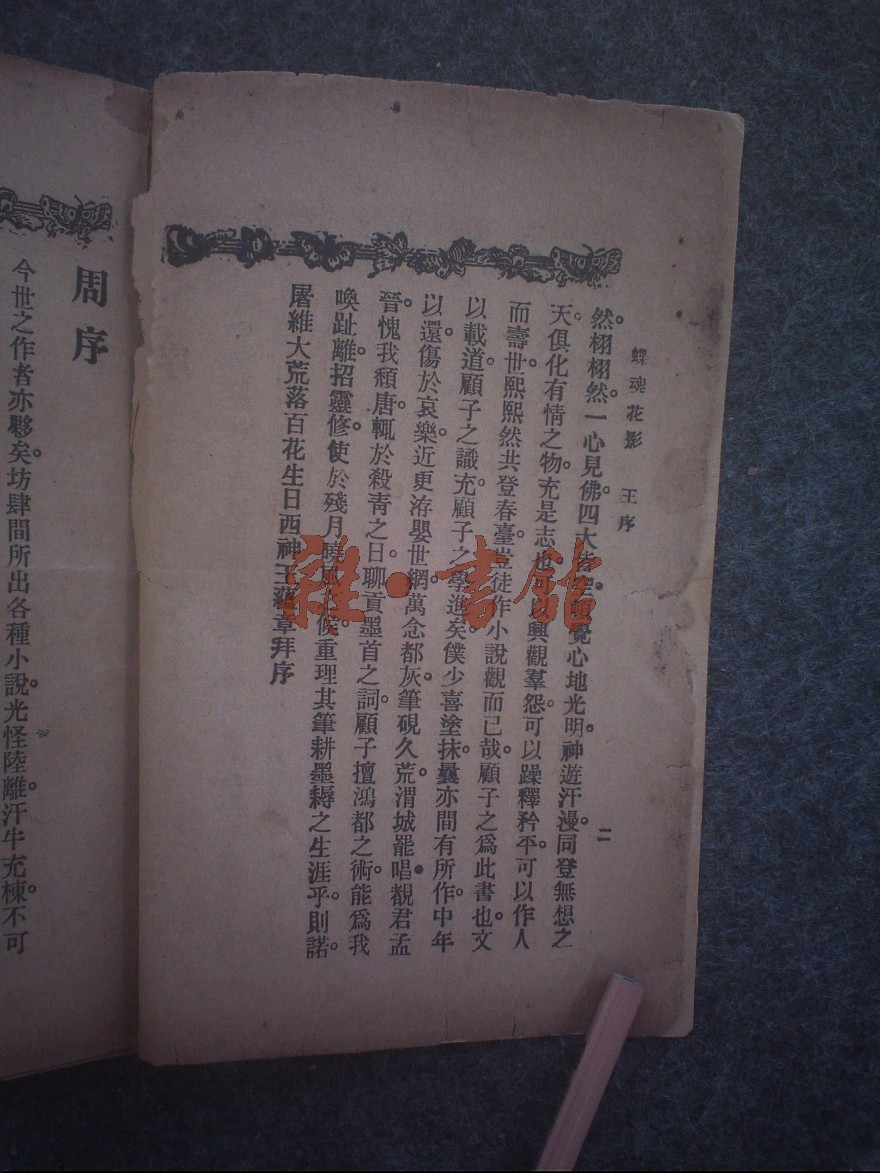 蝶魂花影 王序
二
然。栩栩然。一心見佛。四大皆空。頓覺心地光明。神遊汗漫。同登無想之
天。俱化有情之物。充是志也。可以興觀羣怨。可以躁釋矜平。可以作人
而壽世。熙熙然共登春臺。豈徒作小說觀而已哉。顧子之爲此書也。文
以載道。顧子之識充。顧子之學進矣。僕少喜塗抹。曩亦間有所作。中年
以還。傷於哀樂。近更洊嬰世網。萬念都灰。筆硯久荒。渭城罷唱。覩君孟
晉。愧我頹唐。輒於殺青之日。聊貢墨首之詞。顧子擅鴻都之術。能爲我
喚趾離。招靈修。使於殘月曉風 候。重理其筆耕墨耨之生涯乎。則諾。
屠維大荒落百花生日西神王蘊章拜序
周序
今世之作者亦夥矣。坊肆間所出各種小說。光怪陸離。汗牛充棟。不可
雜·書館